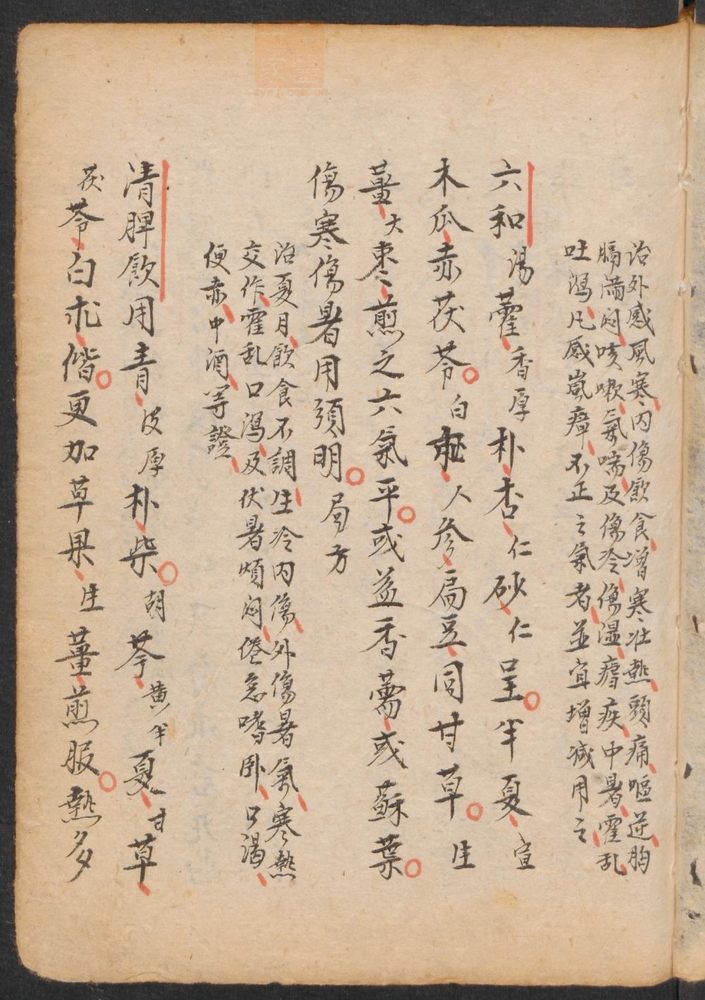 治外感風寒内傷飲食增寒壮熱頭痛嘔逆胸
膈滿悶咳嗽氣喘及傷冷傷湿瘧疾中暑霍乱
吐瀉凡感嵐瘴不正之氣者並宜增減用之
六和湯藿香厚朴杏仁砂仁呈半夏宣
木瓜赤茯苓白朮人參扁豆同甘草生
薑大棗煎之六氣平或益香薷或蘇葉
傷寒傷暑用須明局方
治夏月飲食不調生冷内傷外傷暑氣寒熱
交作霍乱口瀉及伏暑煩悶倦怠嗜卧口渴
便赤中酒等證
清脾飲用青皮厚朴柴胡芩黄半夏甘草
茯苓白朮偕更加草果生薑煎服熱多